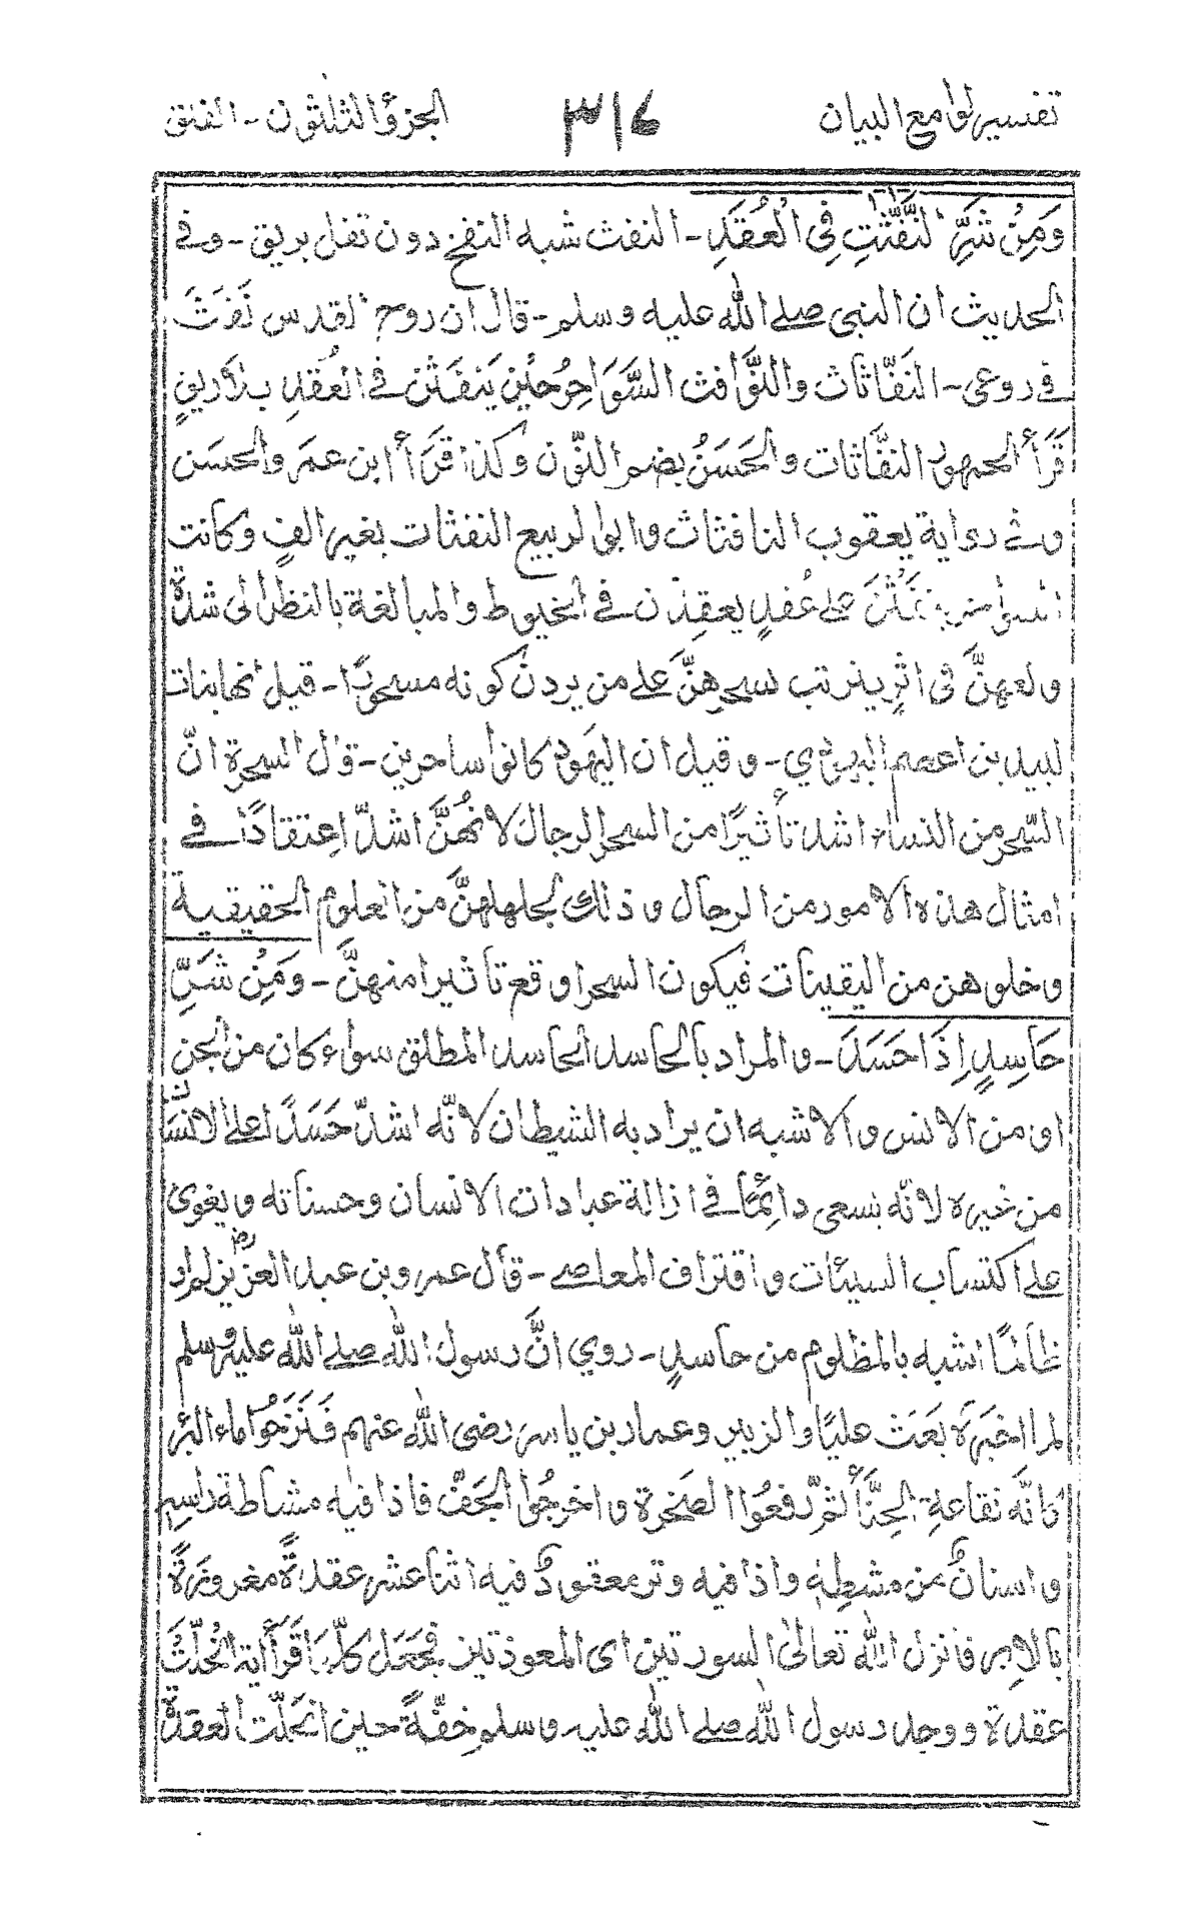 تفسير لوامع البيان ٣١٤ الجزء الثلثون - الفلق
وَمِنْ شَرِّ النَّفّٰثٰتِ فِى الْعُقَدِ - النفث شبه النفخ دون تفل بريق - وفى
الحديث ان النبى صلى الله عليه وسلم - قال ان روح القدس نَفَثَ
فى روعى - النَفّاثاث والنَّوافث السَّوَاحِرُ حَيْن يَنفثْن فى العُقدِ بلا ريقٍ
قَرَأَ الجمهور النفَّاثات والحَسَنُ بضم النّون وكذا قَرَأَ ابن عمر والحسَن
وفى رواية يعقوب النافثاث وابوالربيع النفثات بغير الفٍ وكانت
السواحر ينفُثْنَ على عُقدٍ يعقِدْن فى الخيوط والمبالغة بالنظر الى شدة
ولعهنَّ فى اثرٍ يترتب سحرهِنَّ على من يردن كونه مسحورًا - قيل انها بنات
لبيد بن اعصم اليهودي - وقيل ان اليهود كانوا ساحرين - قال السحرة انّ
السّحر من النساء اشد تأثيرًا من السحر الرجال لانّهُنَّ اشدّ اعِتقادًا فى
امثال هذه الامور من الرجال وذلك لجهلهنَّ من العلوم الحقيقية
وخلوهن من اليقينات فيكون السحر اوقع تاثيرا منهنَّ - وَمِنْ شَرِّ
حَاسِدٍ اِذَا حَسَدَ - والمراد بالحاسد الحاسد المطلق سواء كان من الجن
او من الانس والاشبه ان يراد به الشيطان لانّه اشدّ حَسَدًا على الانسان
من غيره لانّه يسعى دائِمًا فى ازالة عبادات الانسان وحسناته ويغوى
على اكتساب السيئات واقتراف المعاصى - قال عمر وبن عبد العزيز رض لم اد
ظالمًا اشبه بالمظلوم من حاسدٍ - روي انَّ رسول الله صلى الله عليه وسلم
لما اخبَرَه بَعَث عليًا والزبير وعمار بن ياسر رضى الله عنهم فَنَزَحُوا ماء البئر
كانّه نقاعةِ الحِنَّأ ثم رفعُوا الصخرة واخرجُوا الجَفّ فاذا فيه مشاطة راسِهٖ
واسنانٌ من مشطِهٖ واذا فيه وتر معقودٌ فيه اثنا عشر عقدةً مغروزةً
بالابر فانزل الله تعالىٰ السورتين اى المعوذتين فجعل كلّما قَرَأَ اٰية انْحَلّتْ
عقدة ووجد رسول الله صلى الله عليه وسلم خفّةً حين انحلّت العقدة